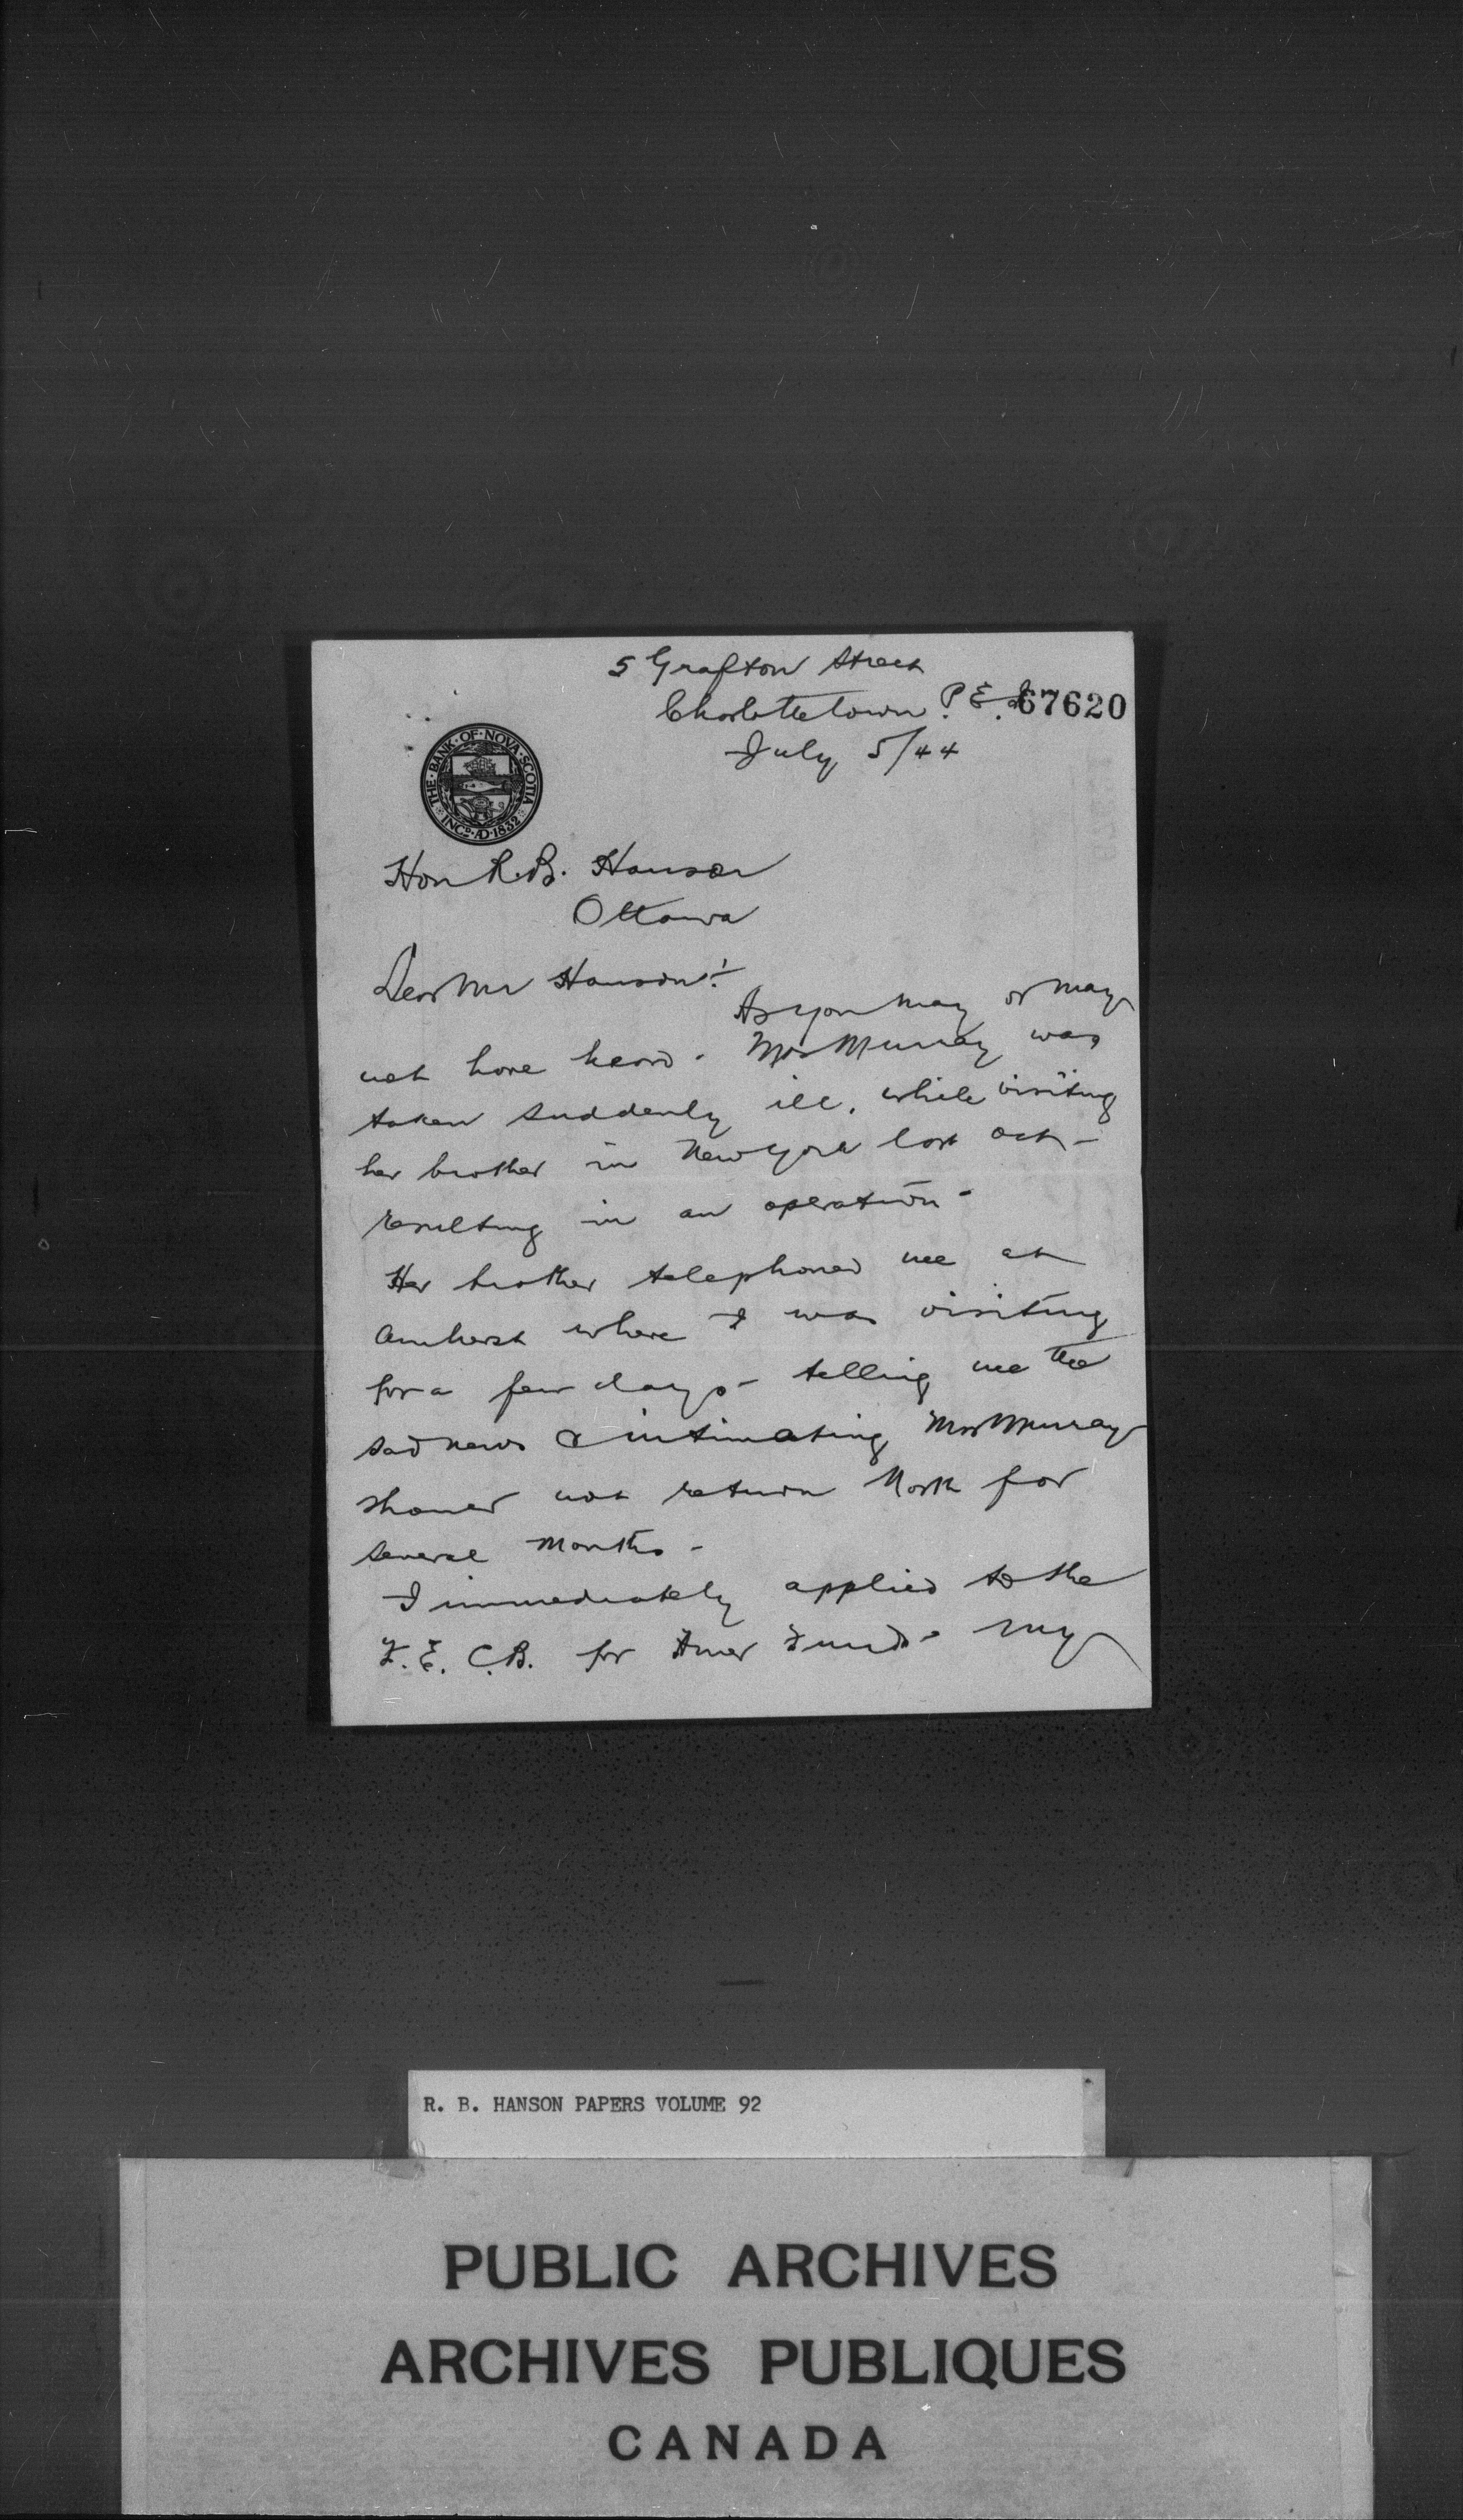 5 Grafton Street
Charlottetown P.E.I.
67620
July 5/44
THE·BANK·OF·NOVA·SCOTIA
INCD·AD·1832
Hon R.B. Hanson
Ottawa
Dear Mr Hanson:-
As you may or may
not have heard - Mrs Murray was
taken suddenly ill, while visiting
her brother in New York last Oct -
resulting in an operation -
Her brother telephoned me at
Amherst where I was visiting
for a few days - telling me the
sad news & intimating Mrs Murray
should not return North for
several months -
I immediately applied to the
F.E.C.B. for Amer Funds - my
R. B. HANSON PAPERS VOLUME 92
PUBLIC ARCHIVES
ARCHIVES PUBLIQUES
CANADA